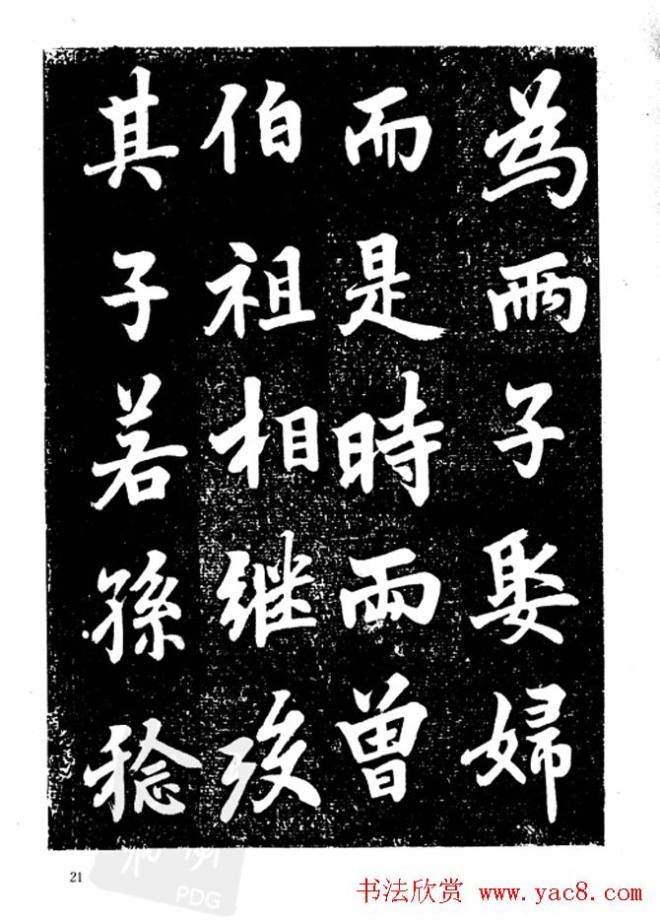 為兩子娶婦
而是時兩曾
伯祖相继歿
其子若孫稔
21
PDG
书法欣赏 www.yac8.com